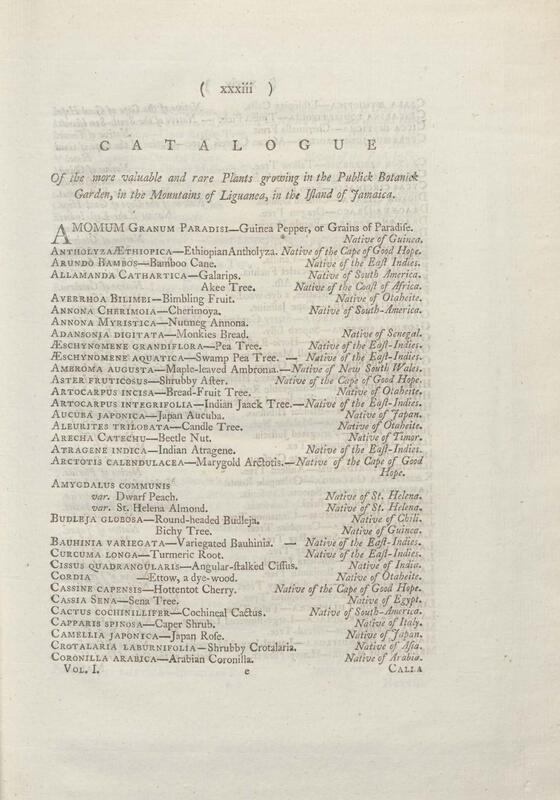 ( xxxiii )
CATALOGUE
Of the more valuable and rare Plants growing in the Publick Botanick
Garden, in the Mountains of Liguanea, in the Iſland of Jamaica.
AMOMUM GRANUM PARADISI—Guinea Pepper, or Grains of Paradiſe.
Native of Guinea.
ANTHOLYZA ÆTHIOPICA—Ethiopian Antholyza. Native of the Cape of Good Hope.
ARUNDO BAMBOS—Bamboo Cane. Native of the Eaſt Indies.
ALLAMANDA CATHARTICA—Galarips. Native of South America.
Akee Tree. Native of the Coaſt of Africa.
AVERRHOA BILIMBI—Bimbling Fruit. Native of Otaheite.
ANNONA CHERIMOIA—Cherimoya. Native of South-America.
ANNONA MYRISTICA—Nutmeg Annona.
ADANSONIA DIGITATA—Monkies Bread. Native of Senegal.
ÆSCHYNOMENE GRANDIFLORA—Pea Tree. Native of the Eaſt-Indies.
ÆSCHYNOMENE AQUATICA—Swamp Pea Tree. — Native of the Eaſt-Indies.
AMBROMA AUGUSTA—Maple-leaved Ambroma.—Native of New South Wales.
ASTER FRUTICOSUS—Shrubby Aſter. Native of the Cape of Good Hope.
ARTOCARPUS INCISA—Bread-Fruit Tree. Native of Otaheite.
ARTOCARPUS INTEGRIFOLIA—Indian Jaack Tree.—Native of the Eaſt-Indies.
AUCUBA JAPONICA—Japan Aucuba. Native of Japan.
ALEURITES TRILOBATA—Candle Tree. Native of Otaheite.
ARECHA CATECHU—Beetle Nut. Native of Timor.
ATRAGENE INDICA—Indian Atragene. Native of the Eaſt-Indies.
ARCTOTIS CALENDULACEA—Marygold Arctotis.—Native of the Cape of Good
Hope.
AMYGDALUS COMMUNIS
var. Dwarf Peach. Native of St. Helena.
var. St. Helena Almond. Native of St. Helena.
BUDLEJA GLOBOSA—Round-headed Budleja. Native of Chili.
Bichy Tree. Native of Guinea.
BAUHINIA VARIEGATA—Variegated Bauhinia. — Native of the Eaſt-Indies.
CURCUMA LONGA—Turmeric Root. Native of the Eaſt-Indies.
CISSUS QUADRANGULARIS—Angular-ſtalked Ciſſus. Native of India.
CORDIA —Ettow, a dye-wood. Native of Otaheite.
CASSINE CAPENSIS—Hottentot Cherry. Native of the Cape of Good Hope.
CASSIA SENA—Sena Tree. Native of Egypt.
CACTUS COCHINILLIFER—Cochineal Cactus. Native of South-America.
CAPPARIS SPINOSA—Caper Shrub. Native of Italy.
CAMELLIA JAPONICA—Japan Roſe. Native of Japan.
CROTALARIA LABURNIFOLIA—Shrubby Crotalaria. Native of Aſia.
CORONILLA ARABICA—Arabian Coronilla. Native of Arabia.
VOL. I. e CALLA